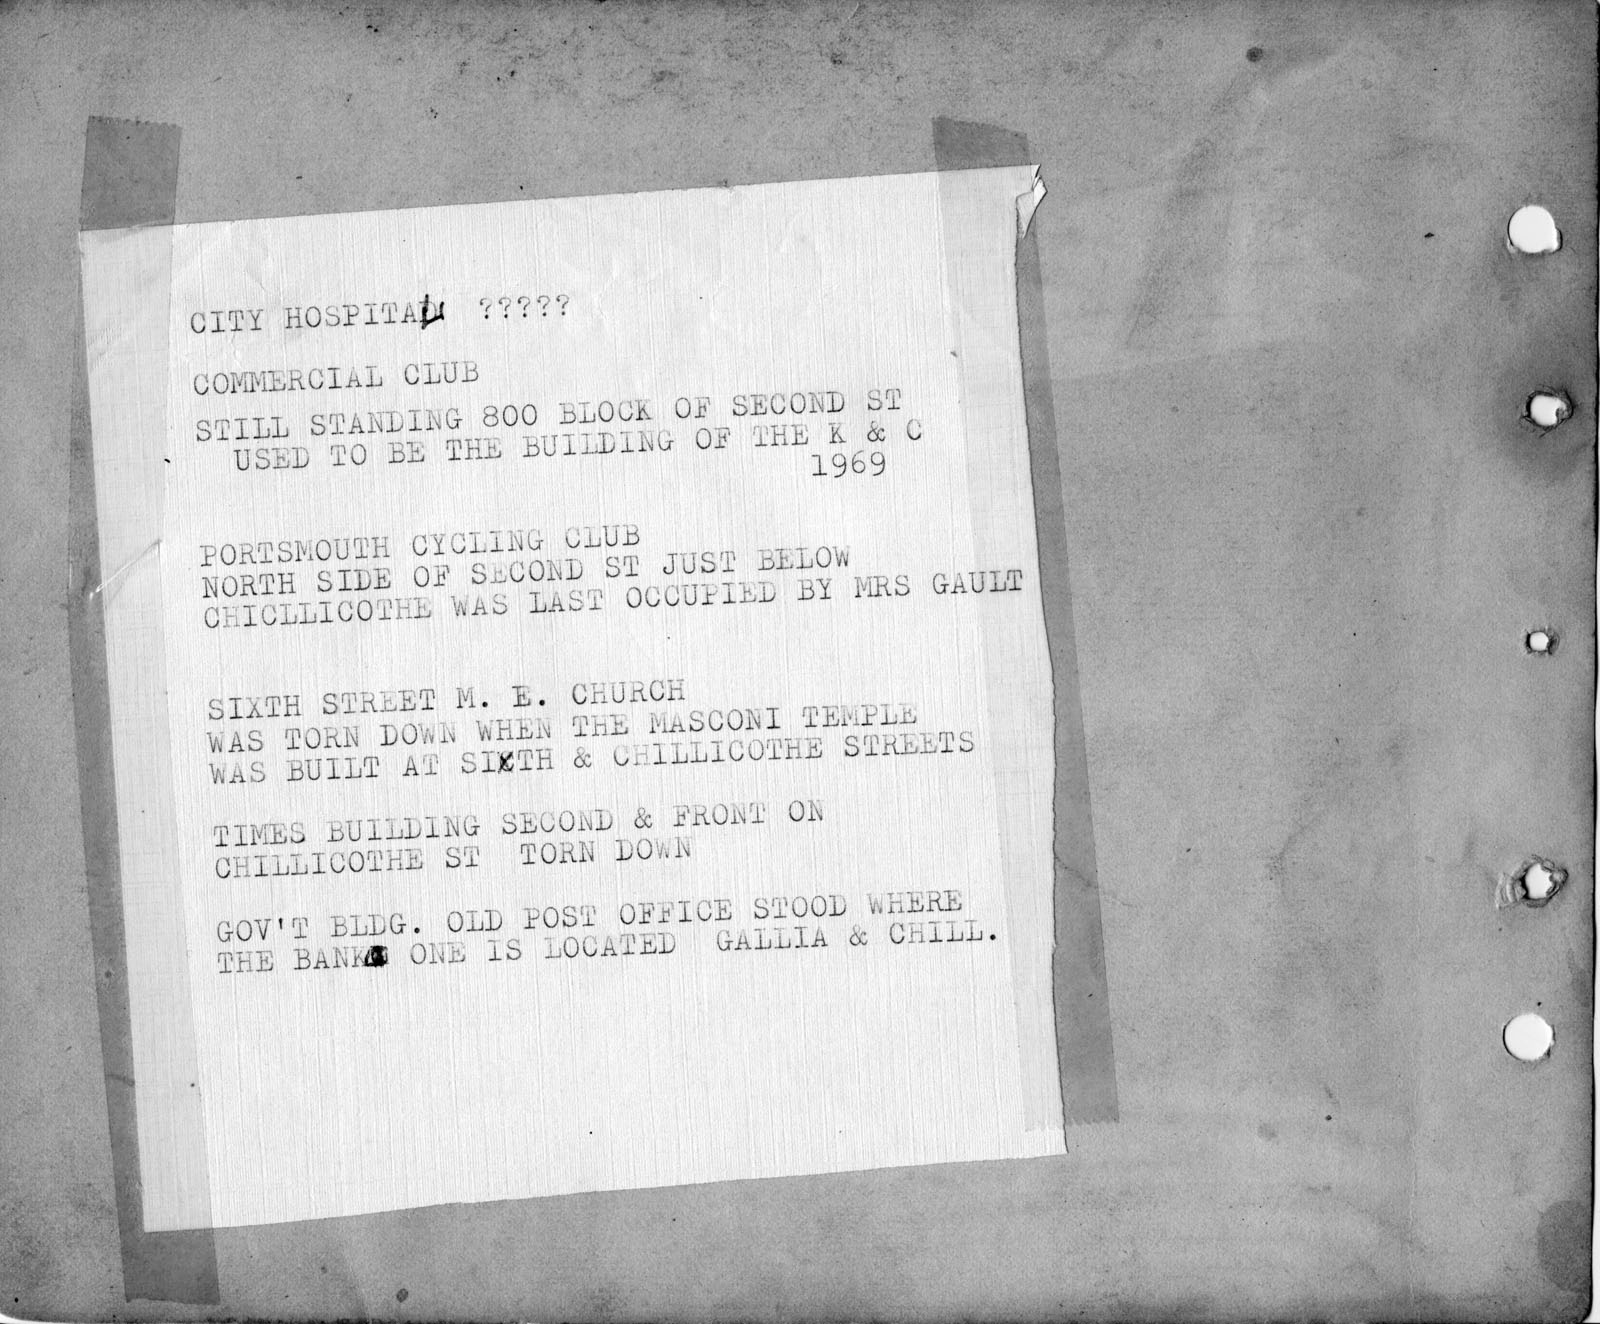 CITY HOSPITAL ?????
COMMERCIAL CLUB
STILL STANDING 800 BLOCK OF SECOND ST
USED TO BE THE BUILDING OF THE K & C
1969
PORTSMOUTH CYCLING CLUB
NORTH SIDE OF SECOND ST JUST BELOW
CHICLLICOTHE WAS LAST OCCUPIED BY MRS GAULT
SIXTH STREET M. E. CHURCH
WAS TORN DOWN WHEN THE MASCONI TEMPLE
WAS BUILT AT SIXTH & CHILLICOTHE STREETS
TIMES BUILDING SECOND & FRONT ON
CHILLICOTHE ST TORN DOWN
GOV'T BLDG. OLD POST OFFICE STOOD WHERE
THE BANK ONE IS LOCATED GALLIA & CHILL.